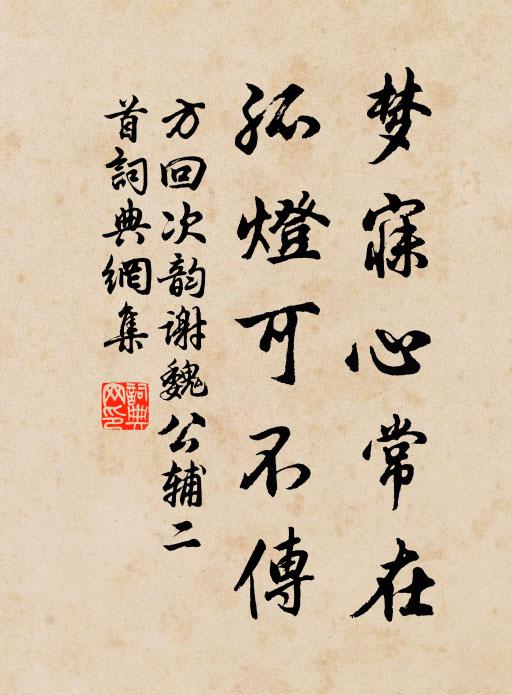 梦寐心常在
孤燈可不傳
方回次韵谢魏公辅二
首詞典網集
詞典
网印